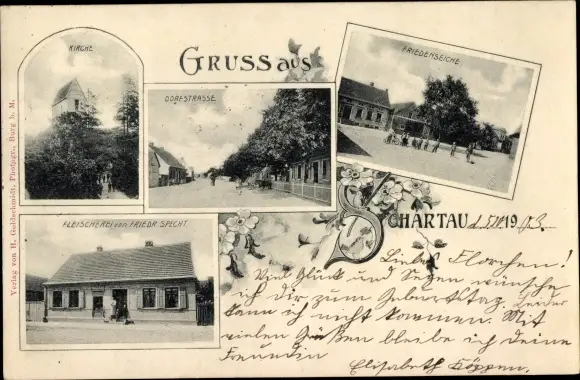 KIRCHE
GRUSS aus
FRIEDENSEICHE
DORFSTRASSE
FLEISCHEREI von FRIEDR. SPECHT
SCHARTAU 1903.
Verlag von H. Goldschmidt, Photogr., Burg b. M.
Liebes Florchen!
Viel Glück und Segen wünsche
ich dir zum Geburtstag. Leider
kann ich nicht kommen. Mit
vielen Grüßen bleibe ich deine
Freundin
Elisabeth